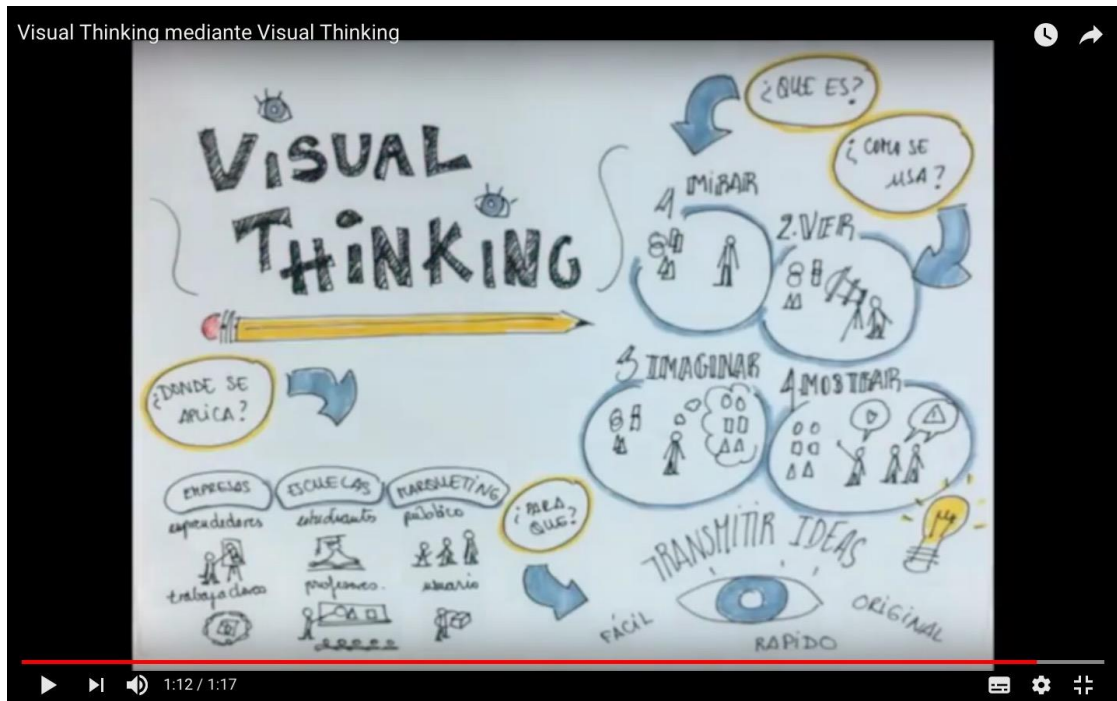 Visual Thinking mediante Visual Thinking
VISUAL
THINKING
¿QUE ES?
¿COMO SE
USA?
1 MIRAR
2. VER
3 IMAGINAR
4. MOSTRAR
¿DONDE SE
APLICA?
EMPRESAS
emprendedores
trabajadores
ESCUELAS
estudiantes
profesores.
MARQUETING
público
usuario
¿PARA
QUE?
TRANSMITIR IDEAS
FÁCIL
RAPIDO
ORIGINAL
1:12 / 1:17